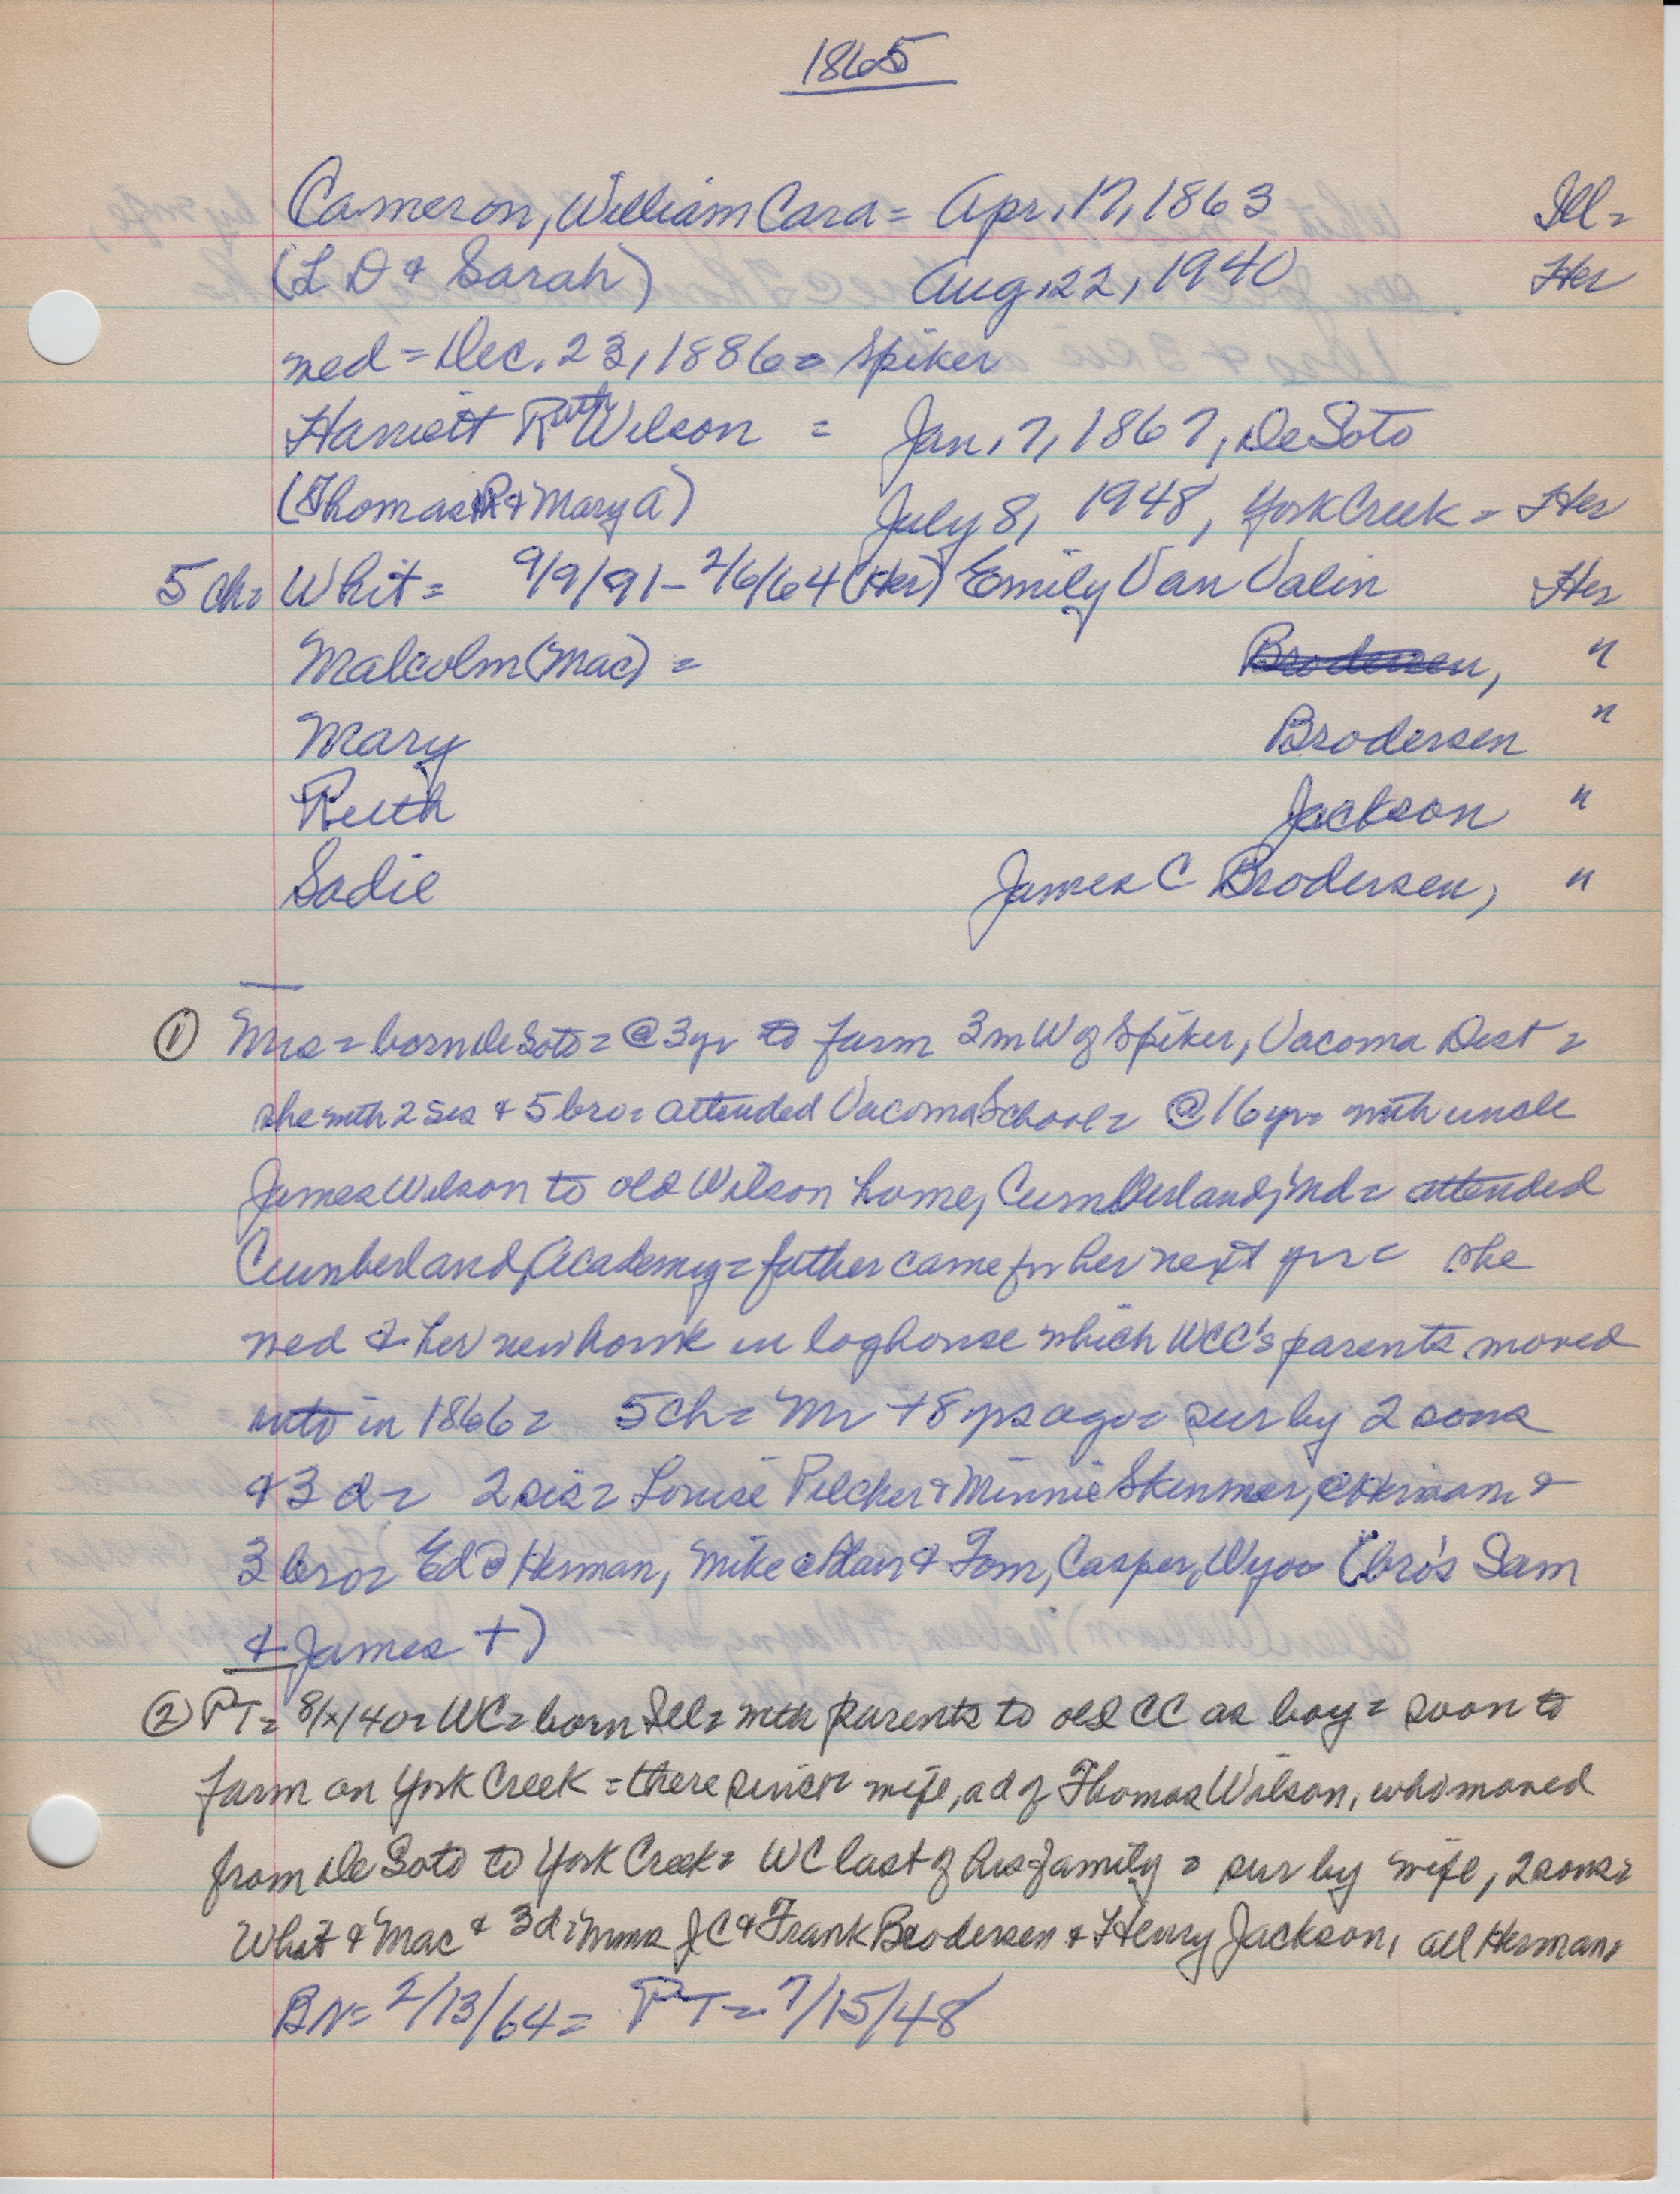 1865
Cameron, William Cara = Apr. 17, 1863 Ill =
(L D & Sarah) Aug. 22, 1940 Her
med = Dec. 23, 1886 = Spiker
Harriett Ruth Wilson = Jan. 7, 1867, DeSoto
(Thomas R & Mary A) July 8, 1948, York Creek = Her
5 ch = Whit = 9/9/91 - 2/6/64 (Her) Emily Van Valin Her
Malcolm (Mac) = Brodersen, "
Mary Brodersen "
Ruth Jackson "
Sadie James C Brodersen, "
① Mrs = born DeSoto = @ 3 yr to farm 3 m W of Spiker, Vacoma Dist =
she with 2 sis & 5 bro = attended Vacoma School = @ 16 yr = with uncle
James Wilson to old Wilson home, Cumberland, Ind = attended
Cumberland Academy = father came for her next yr = she
med & her new home in loghouse which WCC's parents moved
into in 1866 = 5 ch = Mr + 8 yrs ago = sur by 2 sons
& 3 d = 2 sis = Louise Pilcher & Minnie Skinner, @ Herman &
3 bro = Ed @ Herman, Mike @ Blair & Tom, Casper, Wyo = (bro's Sam
& James +)
② PT = 8/x/40 = WC = born Ill = with parents to old CC as boy = soon to
farm on York Creek = there since = wife, a d of Thomas Wilson, who moved
from DeSoto to York Creek = WC last of his family = sur by wife, 2 sons =
Whit & Mac & 3 d = Mmes J C & Frank Brodersen & Henry Jackson, all Herman
BN = 2/13/64 = PT = 7/15/48